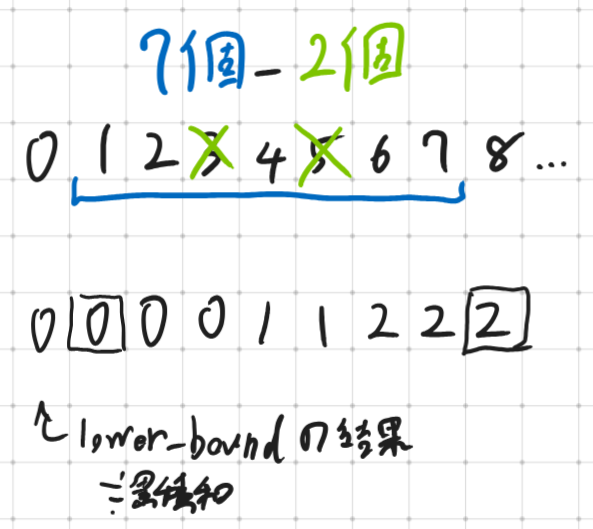 7個-2個
0 1 2 3 4 5 6 7 8 ...
0 0 0 0 1 1 2 2 2
↑ lower_boundの結果
≒累積和